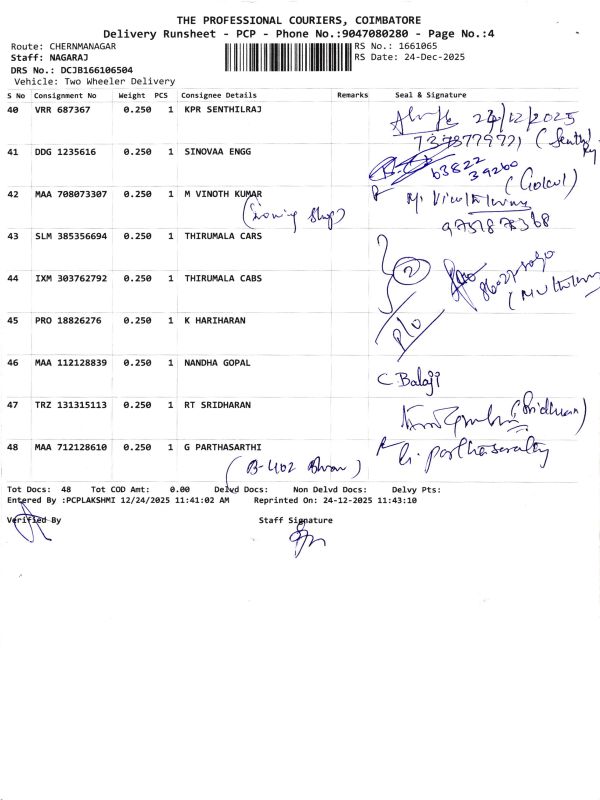 THE PROFESSIONAL COURIERS, COIMBATORE
Delivery Runsheet - PCP - Phone No.:9047080280 - Page No.:4
Route: CHERNMANAGAR
RS No.: 1661065
Staff: NAGARAJ
RS Date: 24-Dec-2025
DRS No.: DCJB166106504
Vehicle: Two Wheeler Delivery
S No Consignment No Weight PCS Consignee Details Remarks Seal & Signature
40 VRR 687367 0.250 1 KPR SENTHILRAJ
24/12/2025
41 DDG 1235616 0.250 1 SINOVAA ENGG
63822
39260
(Gokul)
42 MAA 708073307 0.250 1 M VINOTH KUMAR
43 SLM 385356694 0.250 1 THIRUMALA CARS
44 IXM 303762792 0.250 1 THIRUMALA CABS
2
45 PRO 18826276 0.250 1 K HARIHARAN
P/O
46 MAA 112128839 0.250 1 NANDHA GOPAL
C Balaji
47 TRZ 131315113 0.250 1 RT SRIDHARAN
48 MAA 712128610 0.250 1 G PARTHASARTHI
G. parthasarathy
Tot Docs: 48 Tot COD Amt: 0.00 Delvd Docs: Non Delvd Docs: Delvy Pts:
Entered By :PCPLAKSHMI 12/24/2025 11:41:02 AM Reprinted On: 24-12-2025 11:43:10
Verified By
Staff Signature